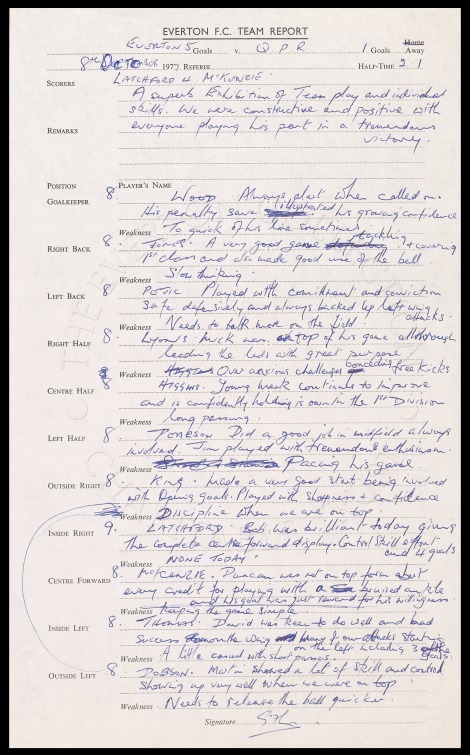 EVERTON F.C. TEAM REPORT
EVERTON 5 Goals v. Q.P.R 1 Goals Home Away
8TH Oct 1977 REFEREE HALF-TIME 2 1
SCORERS LATCHFORD 4 McKENZIE
A superb Exhibition of Team play and individual
skills. We were constructive and positive with
REMARKS everyone playing his part in a tremendous
victory.
POSITION PLAYER'S NAME
GOALKEEPER 8. WOOD Always alert when called on.
His penalty save illustrated his growing confidence
Weakness To quick of his line sometimes
RIGHT BACK 8. JONES. A very good game tackling + covering
1st class and also made good use of the ball
Weakness Slow thinking.
LEFT BACK 8 PEJIC Played with commitment and conviction
safe defensively and always backed up left wing
attacks.
Weakness Needs to talk more on the field.
RIGHT HALF 8. Lyons. Mick was on top of his game although
leading the lads with great purpose
Weakness Over anxious challenges conceding free kicks
CENTRE HALF 8 HIGGINS. Young Mark continues to improve
and is confidently holding is own in the 1st Division
Weakness long passing.
LEFT HALF 8. PEARSON Did a good job in midfield always
involved. Jim played with tremendous enthusiasm.
Weakness Pacing his game
OUTSIDE RIGHT 8. KING. Made a very good start being involved
with Opening goal. Played with sharpness + confidence
Weakness Discipline when we are on top.
INSIDE RIGHT 9. LATCHFORD. Bob was brilliant today giving
the complete centre forward display. Control Skill effort
and 4 goals
Weakness NONE TODAY
CENTRE FORWARD 8. McKENZIE. Duncan was not on top form but
every credit for playing with a bruised ankle
and his goal was just reward for his willingness.
Weakness Keeping the game simple
INSIDE LEFT 8. THOMAS. David was keen to do well and had
success down the wing many of our attacks starting
on the left including 3 of the goals.
Weakness A little casual with short passes.
OUTSIDE LEFT 8. DOBSON. Martin showed a lot of skill and control
Showing up very well when we were on top
Weakness Needs to release the ball quicker.
Signature